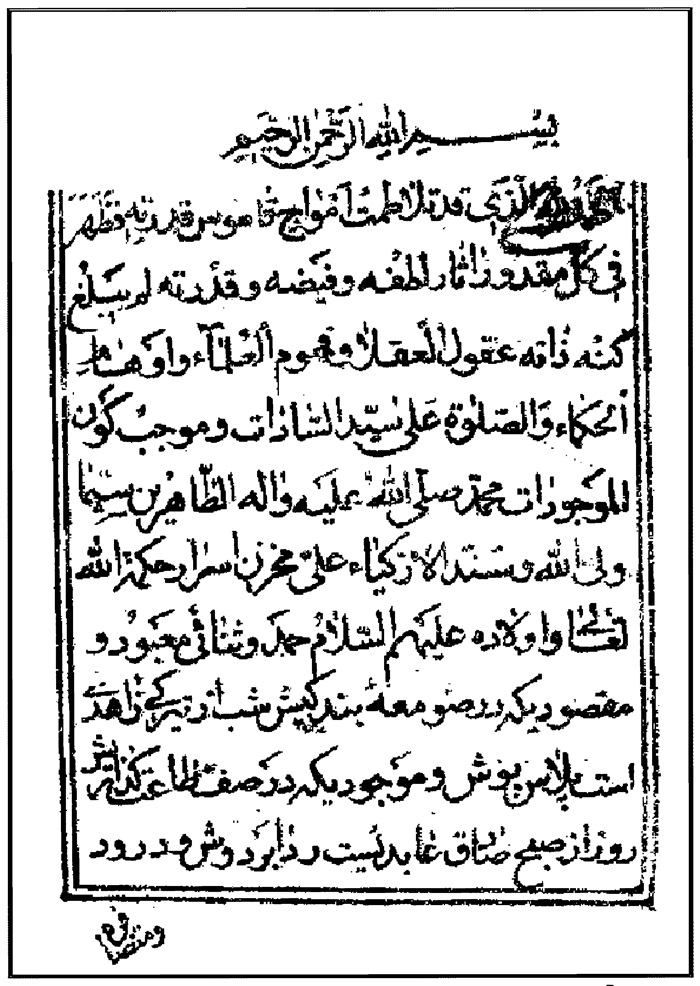 بسم الله الرحمن الرحيم
الحمد لله الذي قد تلاطمت امواج قاموس قدرته فظهر
في كل مقدور اثار لطفه وفيضه وقدرته لم يبلغ
كنه ذاته عقول العقلاء وفهوم العلماء واوهام
الحكماء والصلوة على سيد السادات وموجب كون
الموجودات محمد صلى الله عليه واله الطاهرين سيما
ولى الله وسند الازكياء على مخزن اسرار حكمة الله
تعالى واولاده عليهم السلام حمد وثنائى معبود و
مقصوديكه در صومعهٔ بندكيش شب از تيركى زاهدى
است پلاس پوش وموجوديكه در صف طاعت كذاريش
روز از صبح صادق عابديست ردا بر دوش ودرود